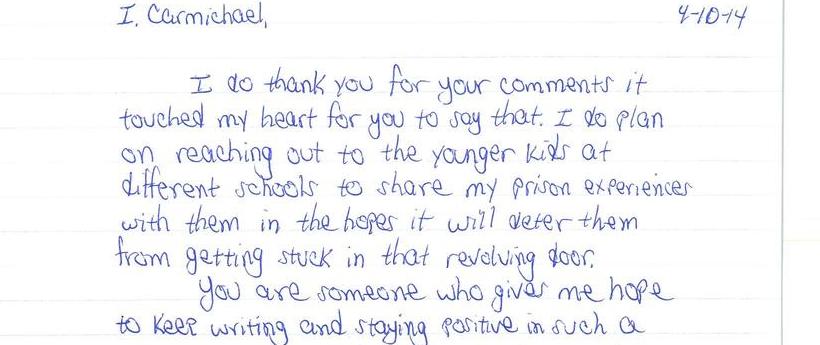 I. Carmichael, 4-10-14
I do thank you for your comments it
touched my heart for you to say that. I do plan
on reaching out to the younger kids at
different schools to share my prison experiences
with them in the hopes it will deter them
from getting stuck in that revolving door.
You are someone who gives me hope
to keep writing and staying positive in such a